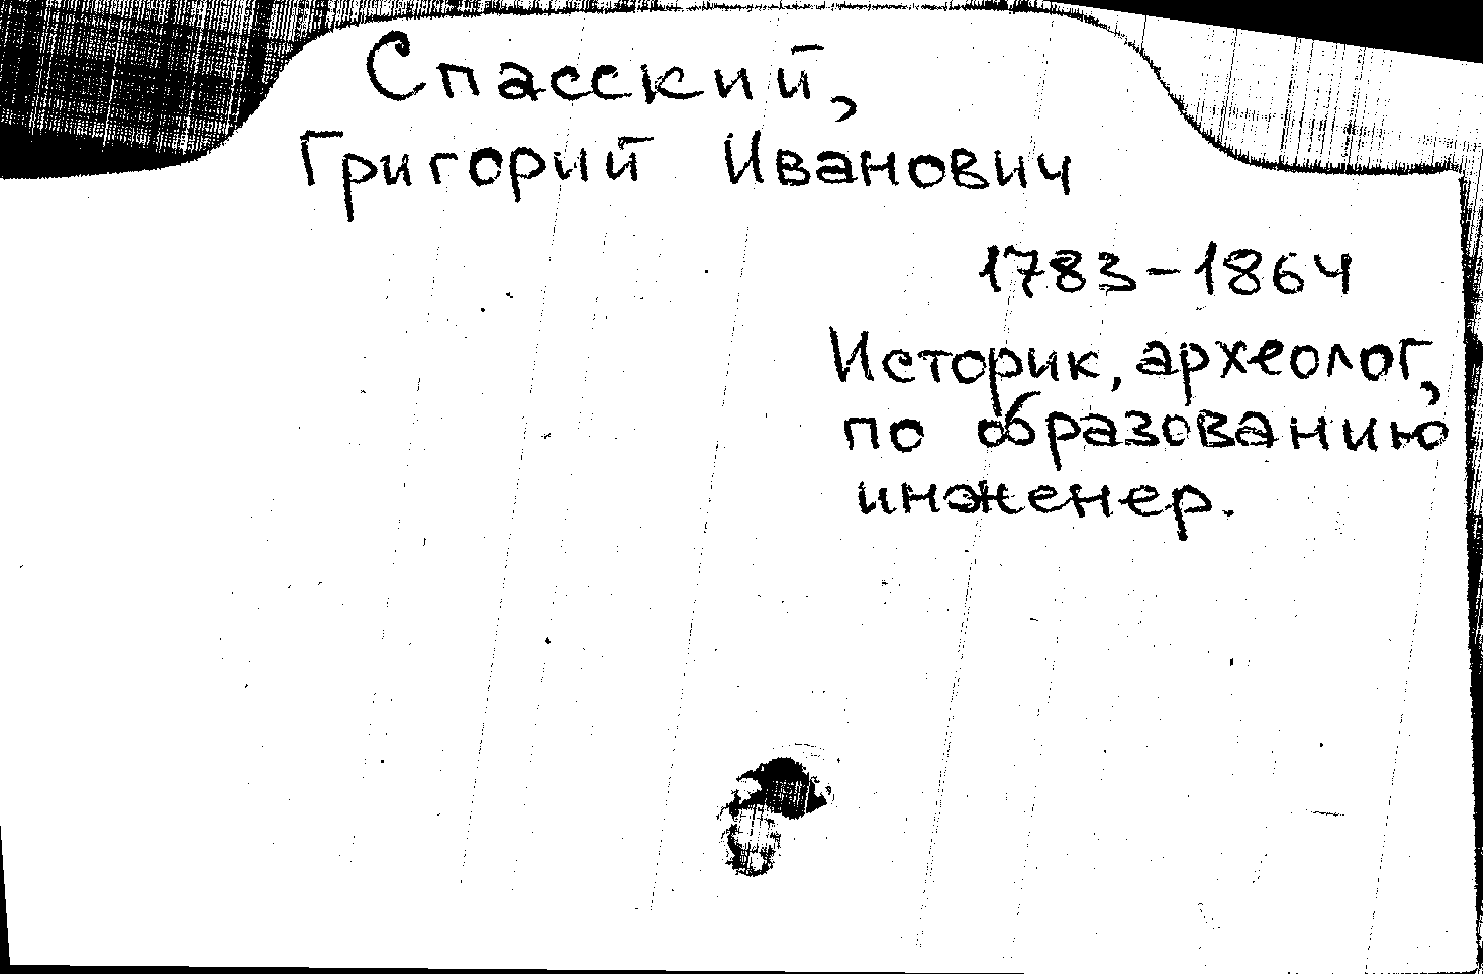 Спасский,
Григорий Иванович
1783-1864
Историк, археолог,
по образованию
инженер.